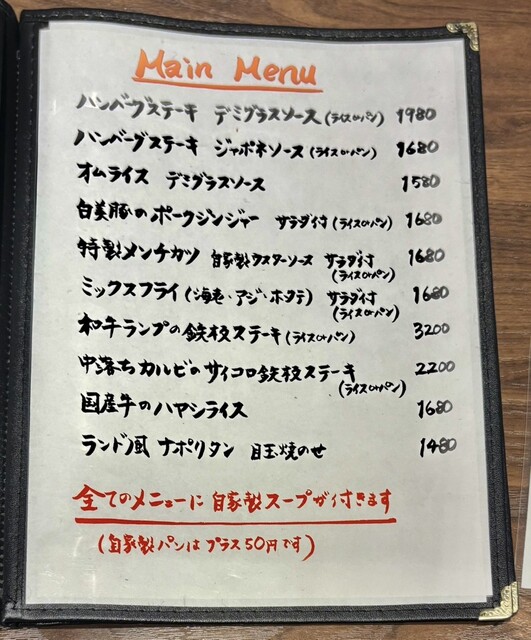 Main Menu
ハンバーグステーキ デミグラスソース (ライスorパン) 1980
ハンバーグステーキ ジャポネソース (ライスorパン) 1680
オムライス デミグラスソース 1580
白美豚のポークジンジャー サラダ付 (ライスorパン) 1680
特製メンチカツ 自家製ウスターソース サラダ付 (ライスorパン) 1680
ミックスフライ (海老・アジ・ホタテ) サラダ付 (ライスorパン) 1680
和牛ランプの鉄板ステーキ (ライスorパン) 3200
中落ちカルビのサイコロ鉄板ステーキ (ライスorパン) 2200
国産牛のハヤシライス 1680
ランドリ風 ナポリタン 目玉焼のせ 1480
全てのメニューに自家製スープが付きます
(自家製パンはプラス50円です)